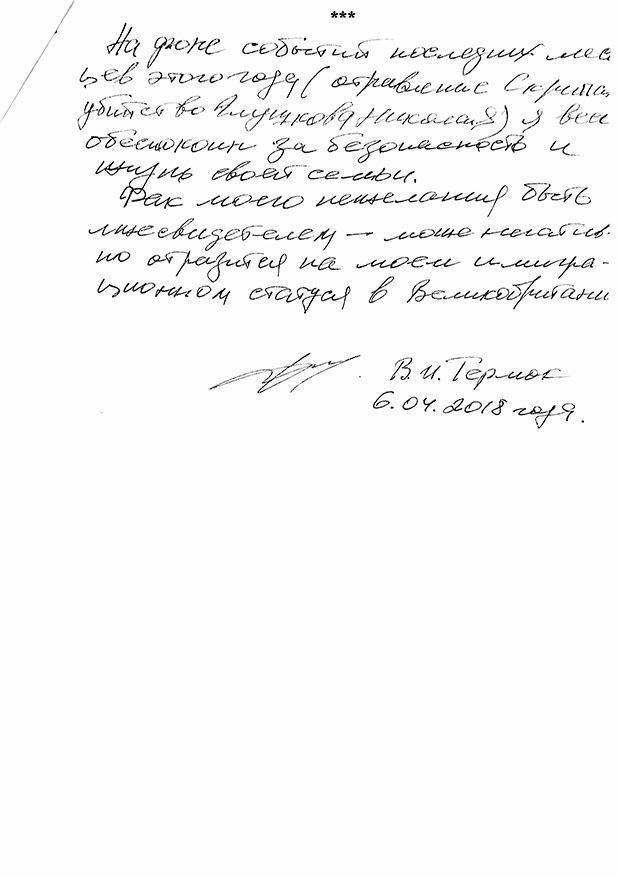 ***
На фоне событий последних меся
цев этого года (отравление Скрипал
убийство Глушкова Николая) я весь
обеспокоин за безопасность и
жизнь своей семьи.
Фак моего нежелания быть
лжесвидетелем — може негатив-
но отразится на моем имигра-
ционном статусе в Великобритани
В.И. Гермок
6.04.2018 года.